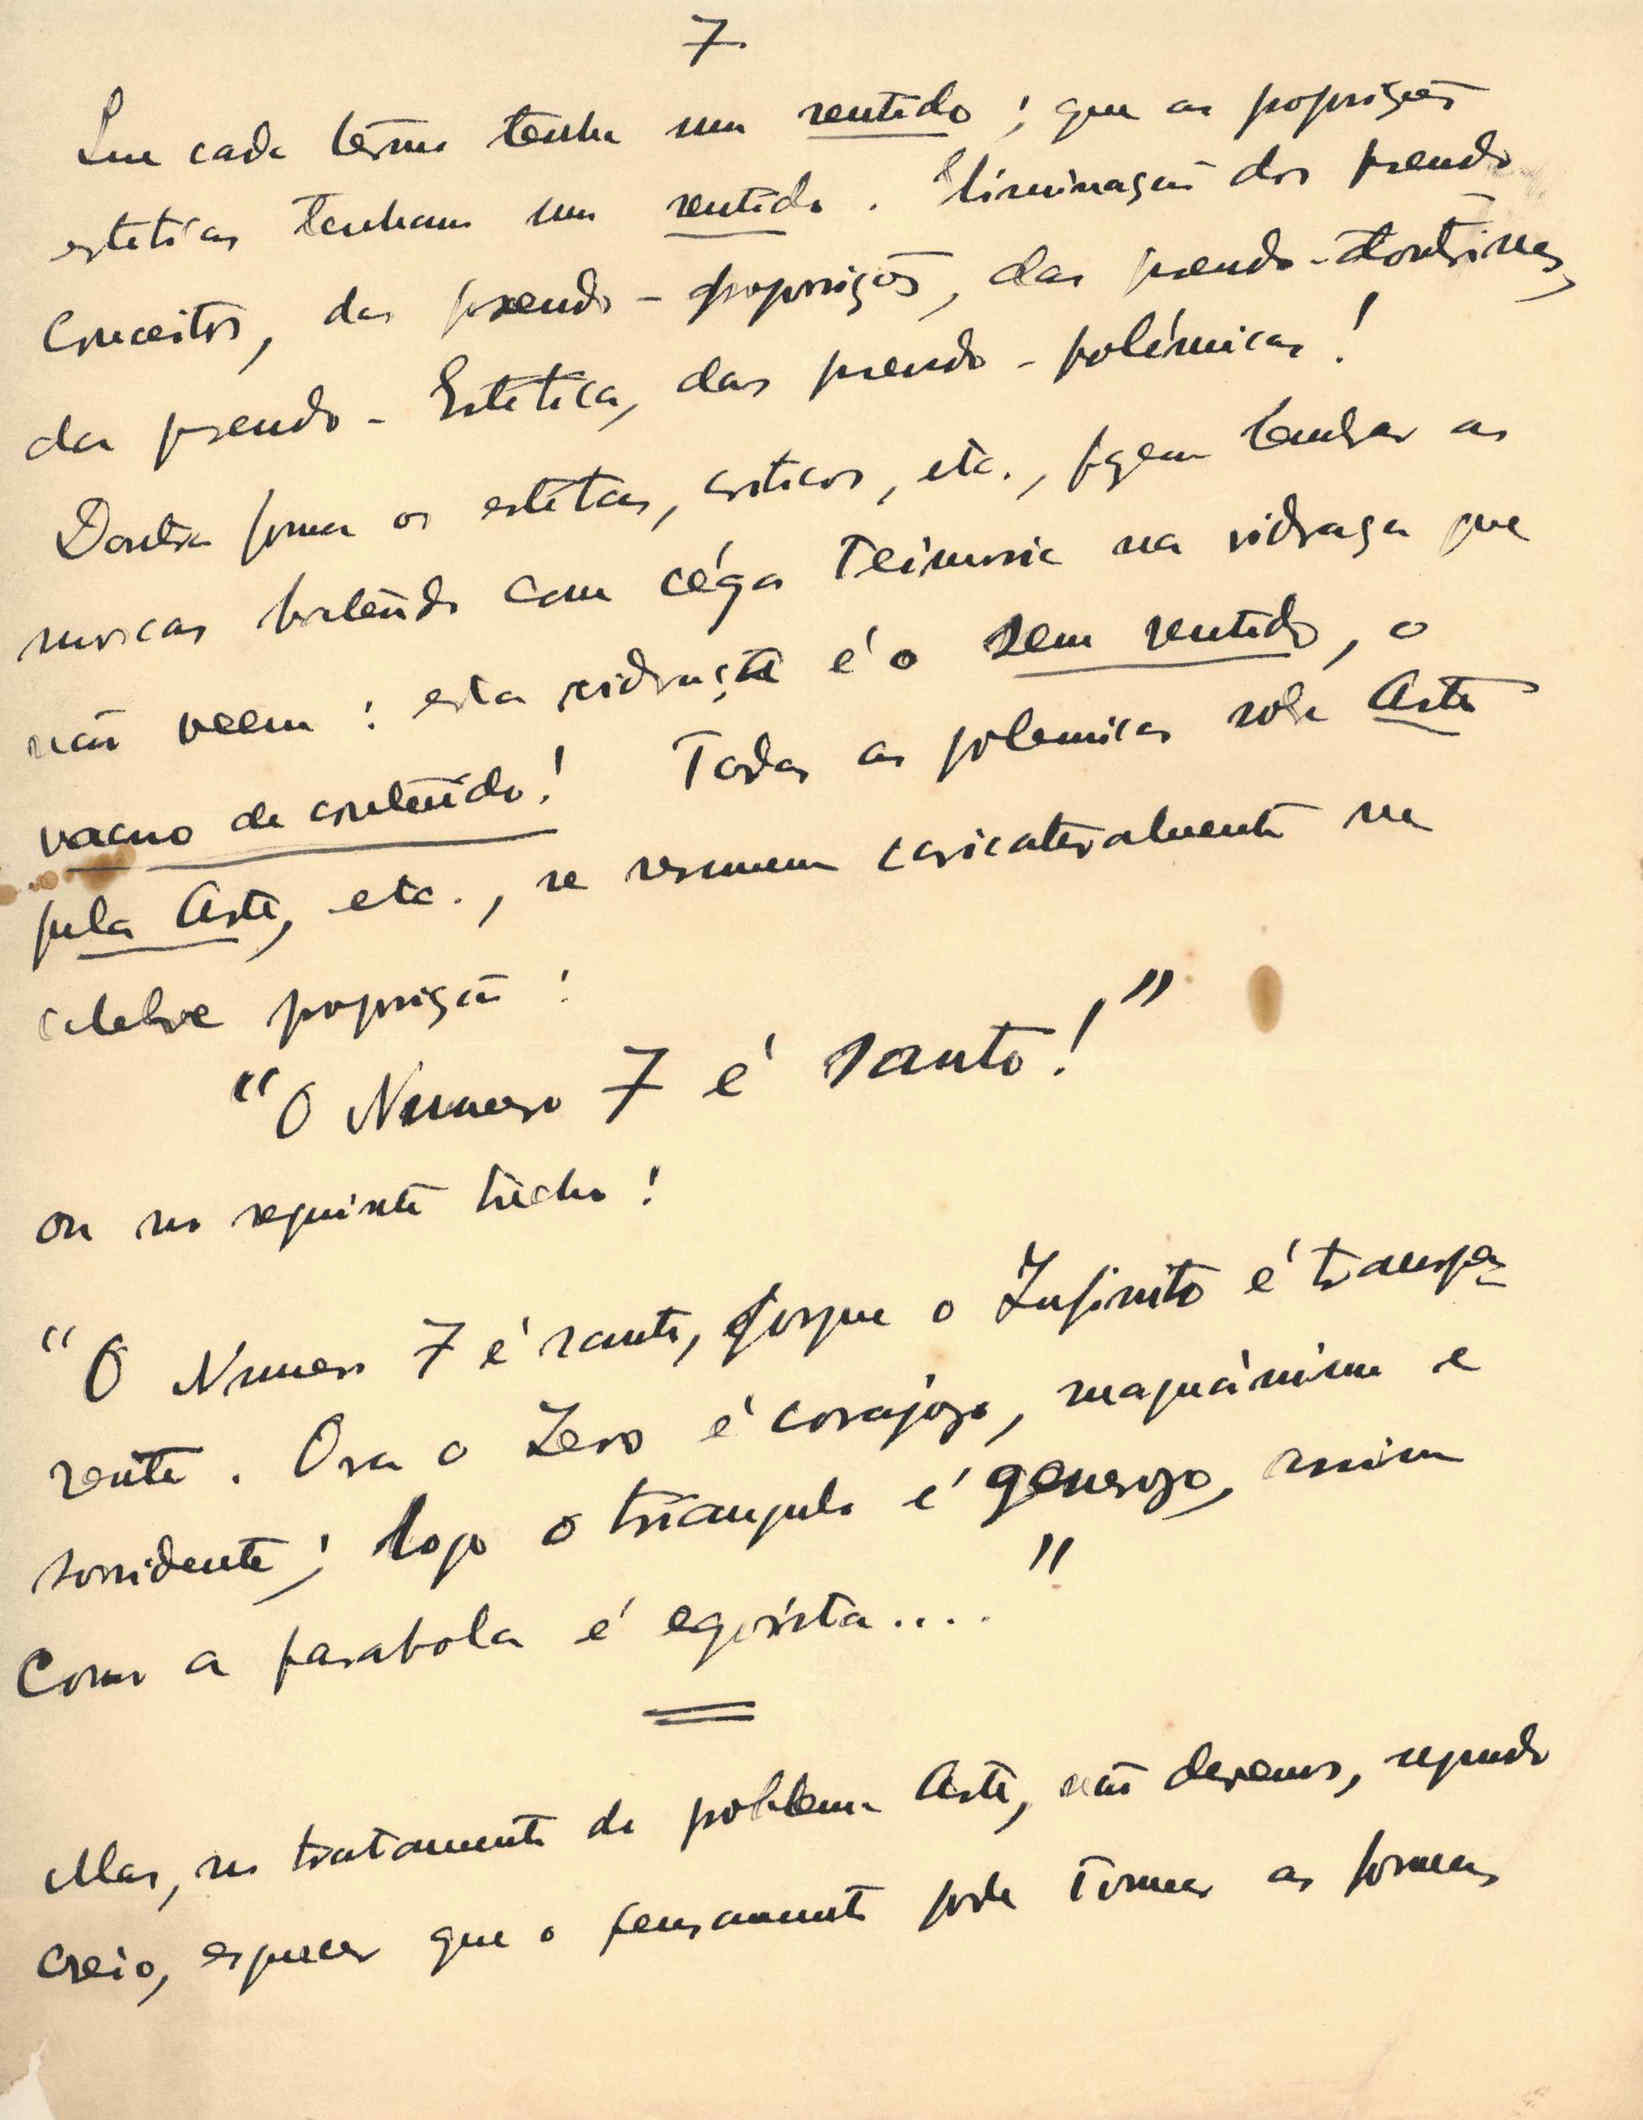 7
Que cada termo tenha um sentido; que as proposições
esteticas tenham um sentido. Eliminação dos pseudo-
conceitos, das pseudo-proposições, das pseudo-doutrinas,
da pseudo-Estetica, das pseudo-polémicas!
Doutra forma os estetas, criticos, etc., fazem lembrar as
moscas batendo com céga teimosia na vidraça que
não veem: esta vidraça é o sem sentido, o
vacuo de conteúdo! Todas as polemicas sobre Arte
pela Arte, etc., se resumem caricaturalmente na
celebre proposição:
"O Numero 7 é santo!"
ou no seguinte trecho:
"O Numero 7 é santo, porque o Infinito é transpa-
rente. Ora o Zero é corajoso, magnánimo e
sorridente; logo o triangulo é generoso, assim
como a parabola é egoista...."
Mas, no tratamento do problema Arte, não devemos, segundo
creio, esquecer que o pensamento pode tomar as formas